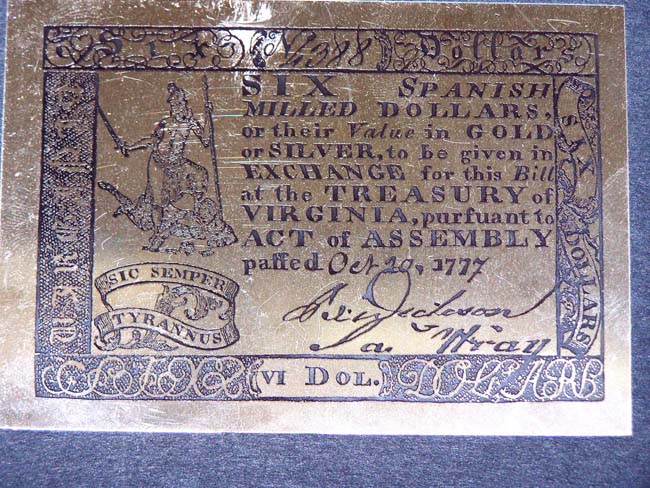 Six 4388 Dollars
SIX SPANISH
MILLED DOLLARS,
or their Value in GOLD
or SILVER, to be given in
EXCHANGE for this Bill
at the TREASURY of
VIRGINIA, purſuant to
ACT of ASSEMBLY
paſſed Oct 20, 1777
SIC SEMPER
TYRANNUS
Ja: Wray
VI DOL.
DOLLARS
SIX DOLLARS
VIRGINIA